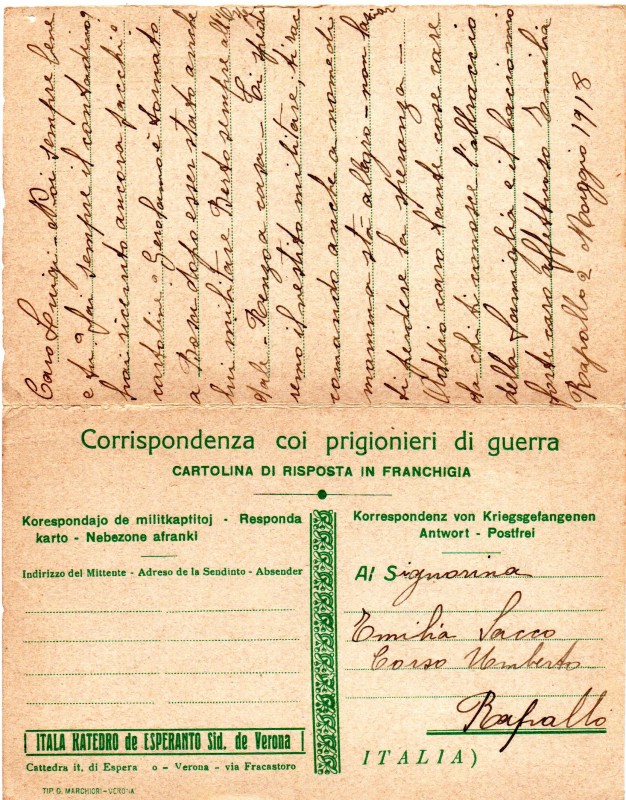 Caro Luigi - Noi sempre bene
e tu? Fai sempre il contadino?
hai ricevuto ancora pacchi e
cartoline? Gerolamo è tornato
a Bosn dopo esser stato anche
lui militare Berto sempre all'
- Renzo a casa - Ci
remo il vestito militare, ti
comando anche a nome di
mamma stà allegro - non
ti perdere la speranza -
Addio caro tante cose care
da chi ti conosce l'abbraccio
della famiglia e il bacio mio
forte caro affettuoso Emilia
Rapallo 2 Maggio 1918
Corrispondenza coi prigionieri di guerra
CARTOLINA DI RISPOSTA IN FRANCHIGIA
Korespondajo de militkaptitoj - Responda
karto - Nebezone afranki
Indirizzo del Mittente - Adreso de la Sendinto - Absender
ITALA KATEDRO de ESPERANTO Sid. de Verona
Cattedra it. di Espera o - Verona - via Fracastoro
TIP. G. MARCHIORI - VERONA
Korrespondenz von Kriegsgefangenen
Antwort - Postfrei
Al Signorina
Emilia Sacco
Corso Umberto
Rapallo
ITALIA)